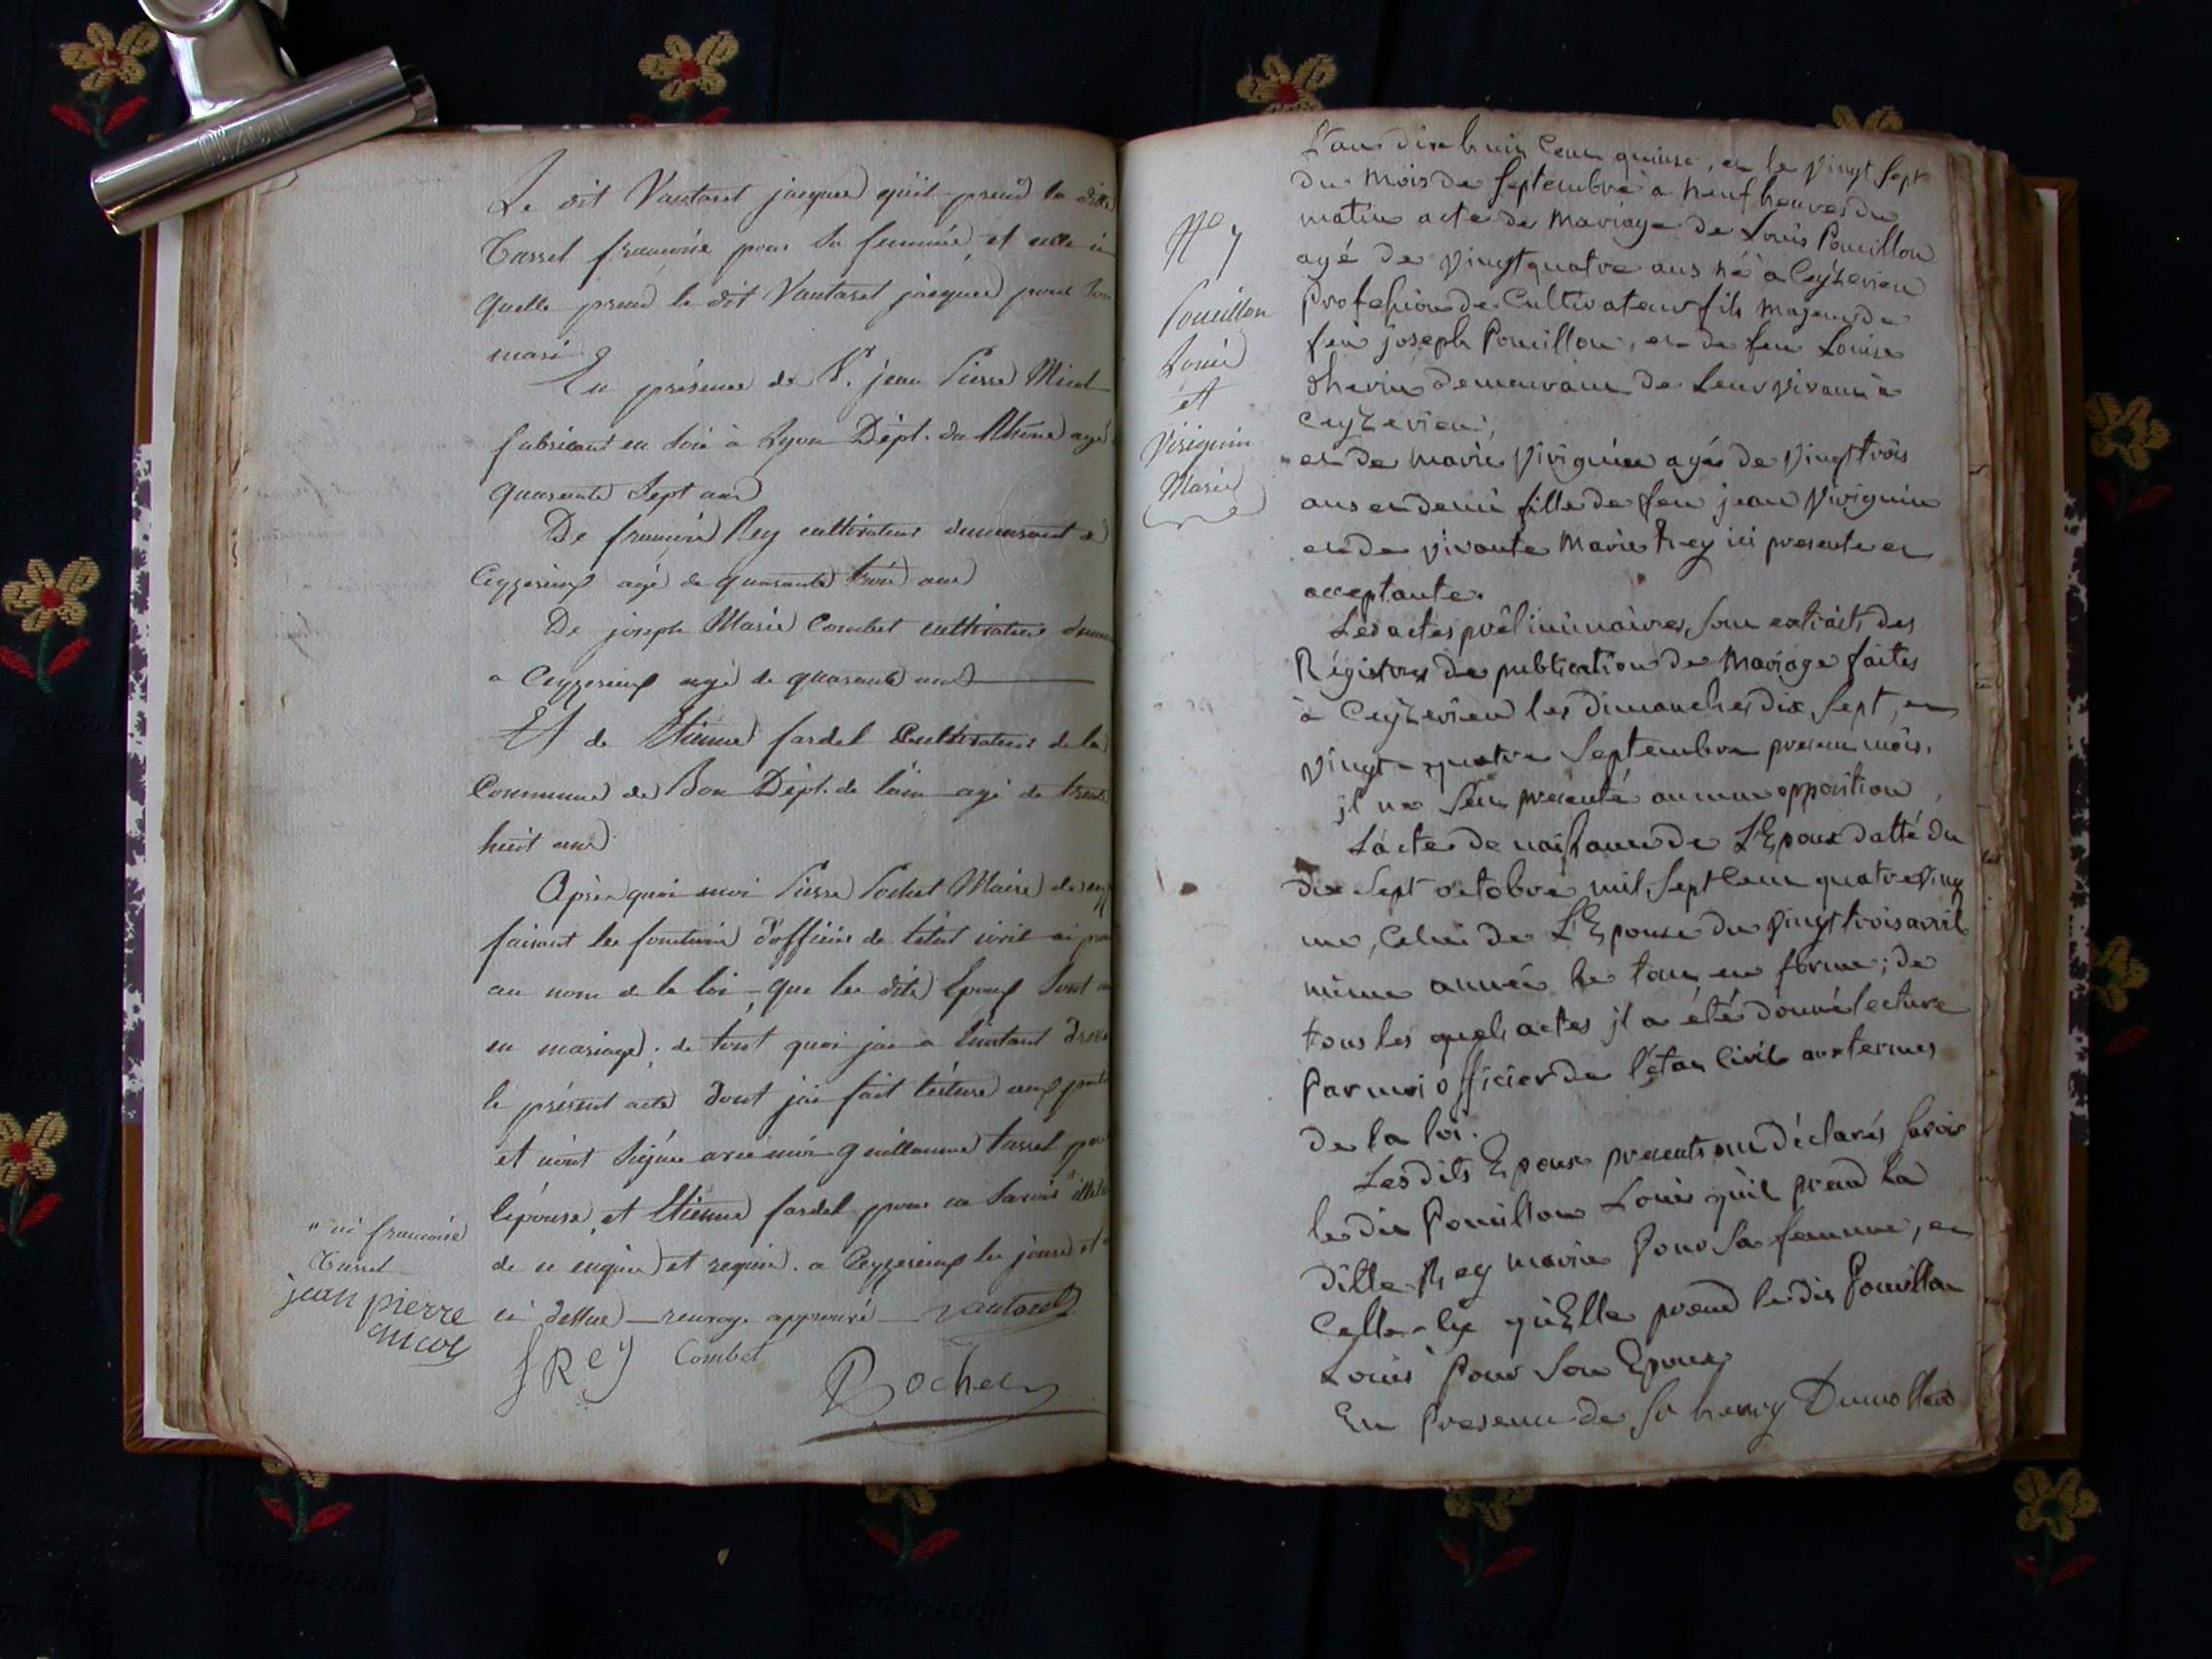 Le dit Vautaret jacques qu'il prend la ditte
Tassel francoise pour sa femme, et celle ci
quelle prend le dit Vautaret jacques pour son
mari
En présence de S. jean Pierre Micol
fabricant en soie à Lyon Dépt. du Rhône agé
quarante Sept ans
De francois Rey cultivateur demeurant a
Ceyzerieux agé de quarante trois ans
De joseph Marie Combet cultivateur
a Ceyzerieux agé de quarante ans
Et de Etienne fardel Cultivateur de la
Commune de Bon Dépt. de lain agé de trente
huit ans
Après quoi moi Pierre Pochet Maire de
faisant les fonctions d'officier de l'état civil ai
au nom de la loi que les dits Epoux Sont
en mariage; de tout quoi jai a linstant
le présent acte dont jai fait lecture aux
et n'ont Signés avec moi guillaume tassel
lépouse, et Etienne fardel pour ne savoir
de ce enquis et requis. a Ceyzerieux les jours et
ci dessus renvoy approuvé Vautaret
" ni francoise
Tassel
jean pierre
micol
f Rey Combet
Pochet
N° 7
Pouillon
Louis
et
Viviguin
Marie
L'an dix huit Cent quinse, et le Vingt Sept
du Mois de Septembre a Neuf heures du
matin acte de Mariage de Louis Pouillon
agé de Vingt quatre ans né a Ceyzerieu
Profession de Cultivateur fils Majeur de
feu joseph Pouillon, et de feu Louise
demeurant de Leur Vivant à
Ceyzerieu;
et de Marie Viviguin agée de Vingt trois
ans et demi fille de feu jean Viviguin
et de Vivante Marie Rey ici presente et
acceptante.
Les actes préliminaires, Sont extraits des
Régistres de publication de Mariage faites
à Ceyzerieu les dimanches dix Sept, et
Vingt-quatre Septembre present mois.
jl ne S'est presenté aucune opposition,
L'acte de naissance de L'Epoux datté du
dix Sept octobre mil Sept Cent quatre Vingt
une, Celui de L'Epouse du Vingt trois avril
même année le tout en forme; de
tous les quels actes jl a été donné lecture
Par moi officier de l'état Civil aux termes
de la loi.
Les dits Epoux presents ont déclarés savoir
le dit Pouillon Louis qu'il prend La
ditte Rey marie Pour Sa femme, et
Celle-Cy qu'Elle prend le dit Pouillon
Louis Pour Son Epoux
En Presence de Sr henry Dumollard